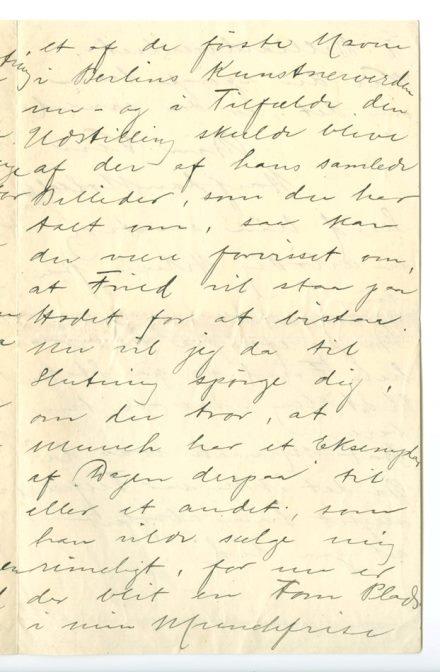 et af de første Navne
i Berlins Kunstnerverden
nu – og i Tilfælde den
Udstilling skulde blive
af der af hans samlede
Billeder, som du har
talt om, saa kan
du være forvisset om,
at Fried vil staa paa
Hodet for at bistaa.
Nu vil jeg da til
Slutning spørge dig,
om du tror, at
Munch har et Eksemplar
af "Dagen derpaa" til
eller et andet, som
han vilde sælge mig
rimeligt, for nu er
der blit en Tom Plads
i min Munchfrise